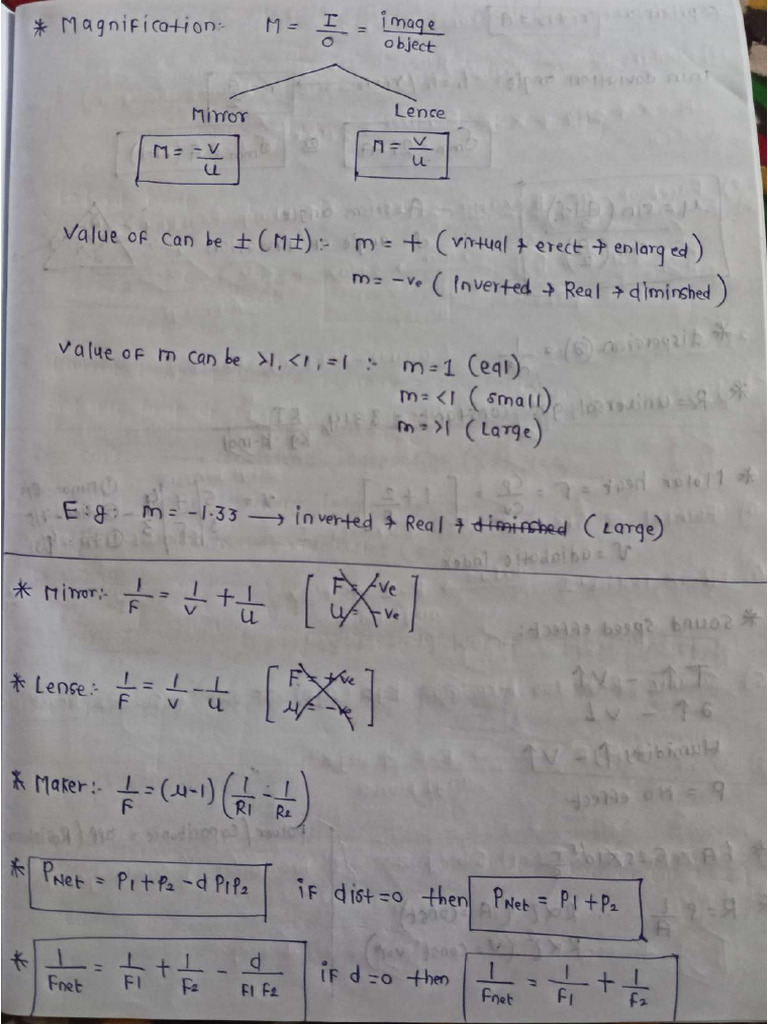 * Magnification:- M = I/O = image/object
Mirror Lence
M = -v/u M = v/u
Value of can be ± (M±) :- m = + (virtual → erect → enlarged)
m = -ve (Inverted → Real → diminshed)
Value of m can be >1, <1, =1 :- m=1 (eql)
m = <1 (small)
m = >1 (Large)
E:g: m = -1.33 → inverted → Real → diminshed (Large)
* Mirror:- 1/F = 1/v + 1/u [F = -ve
u = -ve]
* Lense:- 1/F = 1/v - 1/u [F = +ve
u = -ve]
* Maker:- 1/F = (μ-1) (1/R1 - 1/R2)
* PNet = P1+P2 - d P1P2 if dist=0 then PNet = P1+P2
* 1/Fnet = 1/F1 + 1/F2 - d/F1 F2 if d=0 then 1/Fnet = 1/F1 + 1/F2